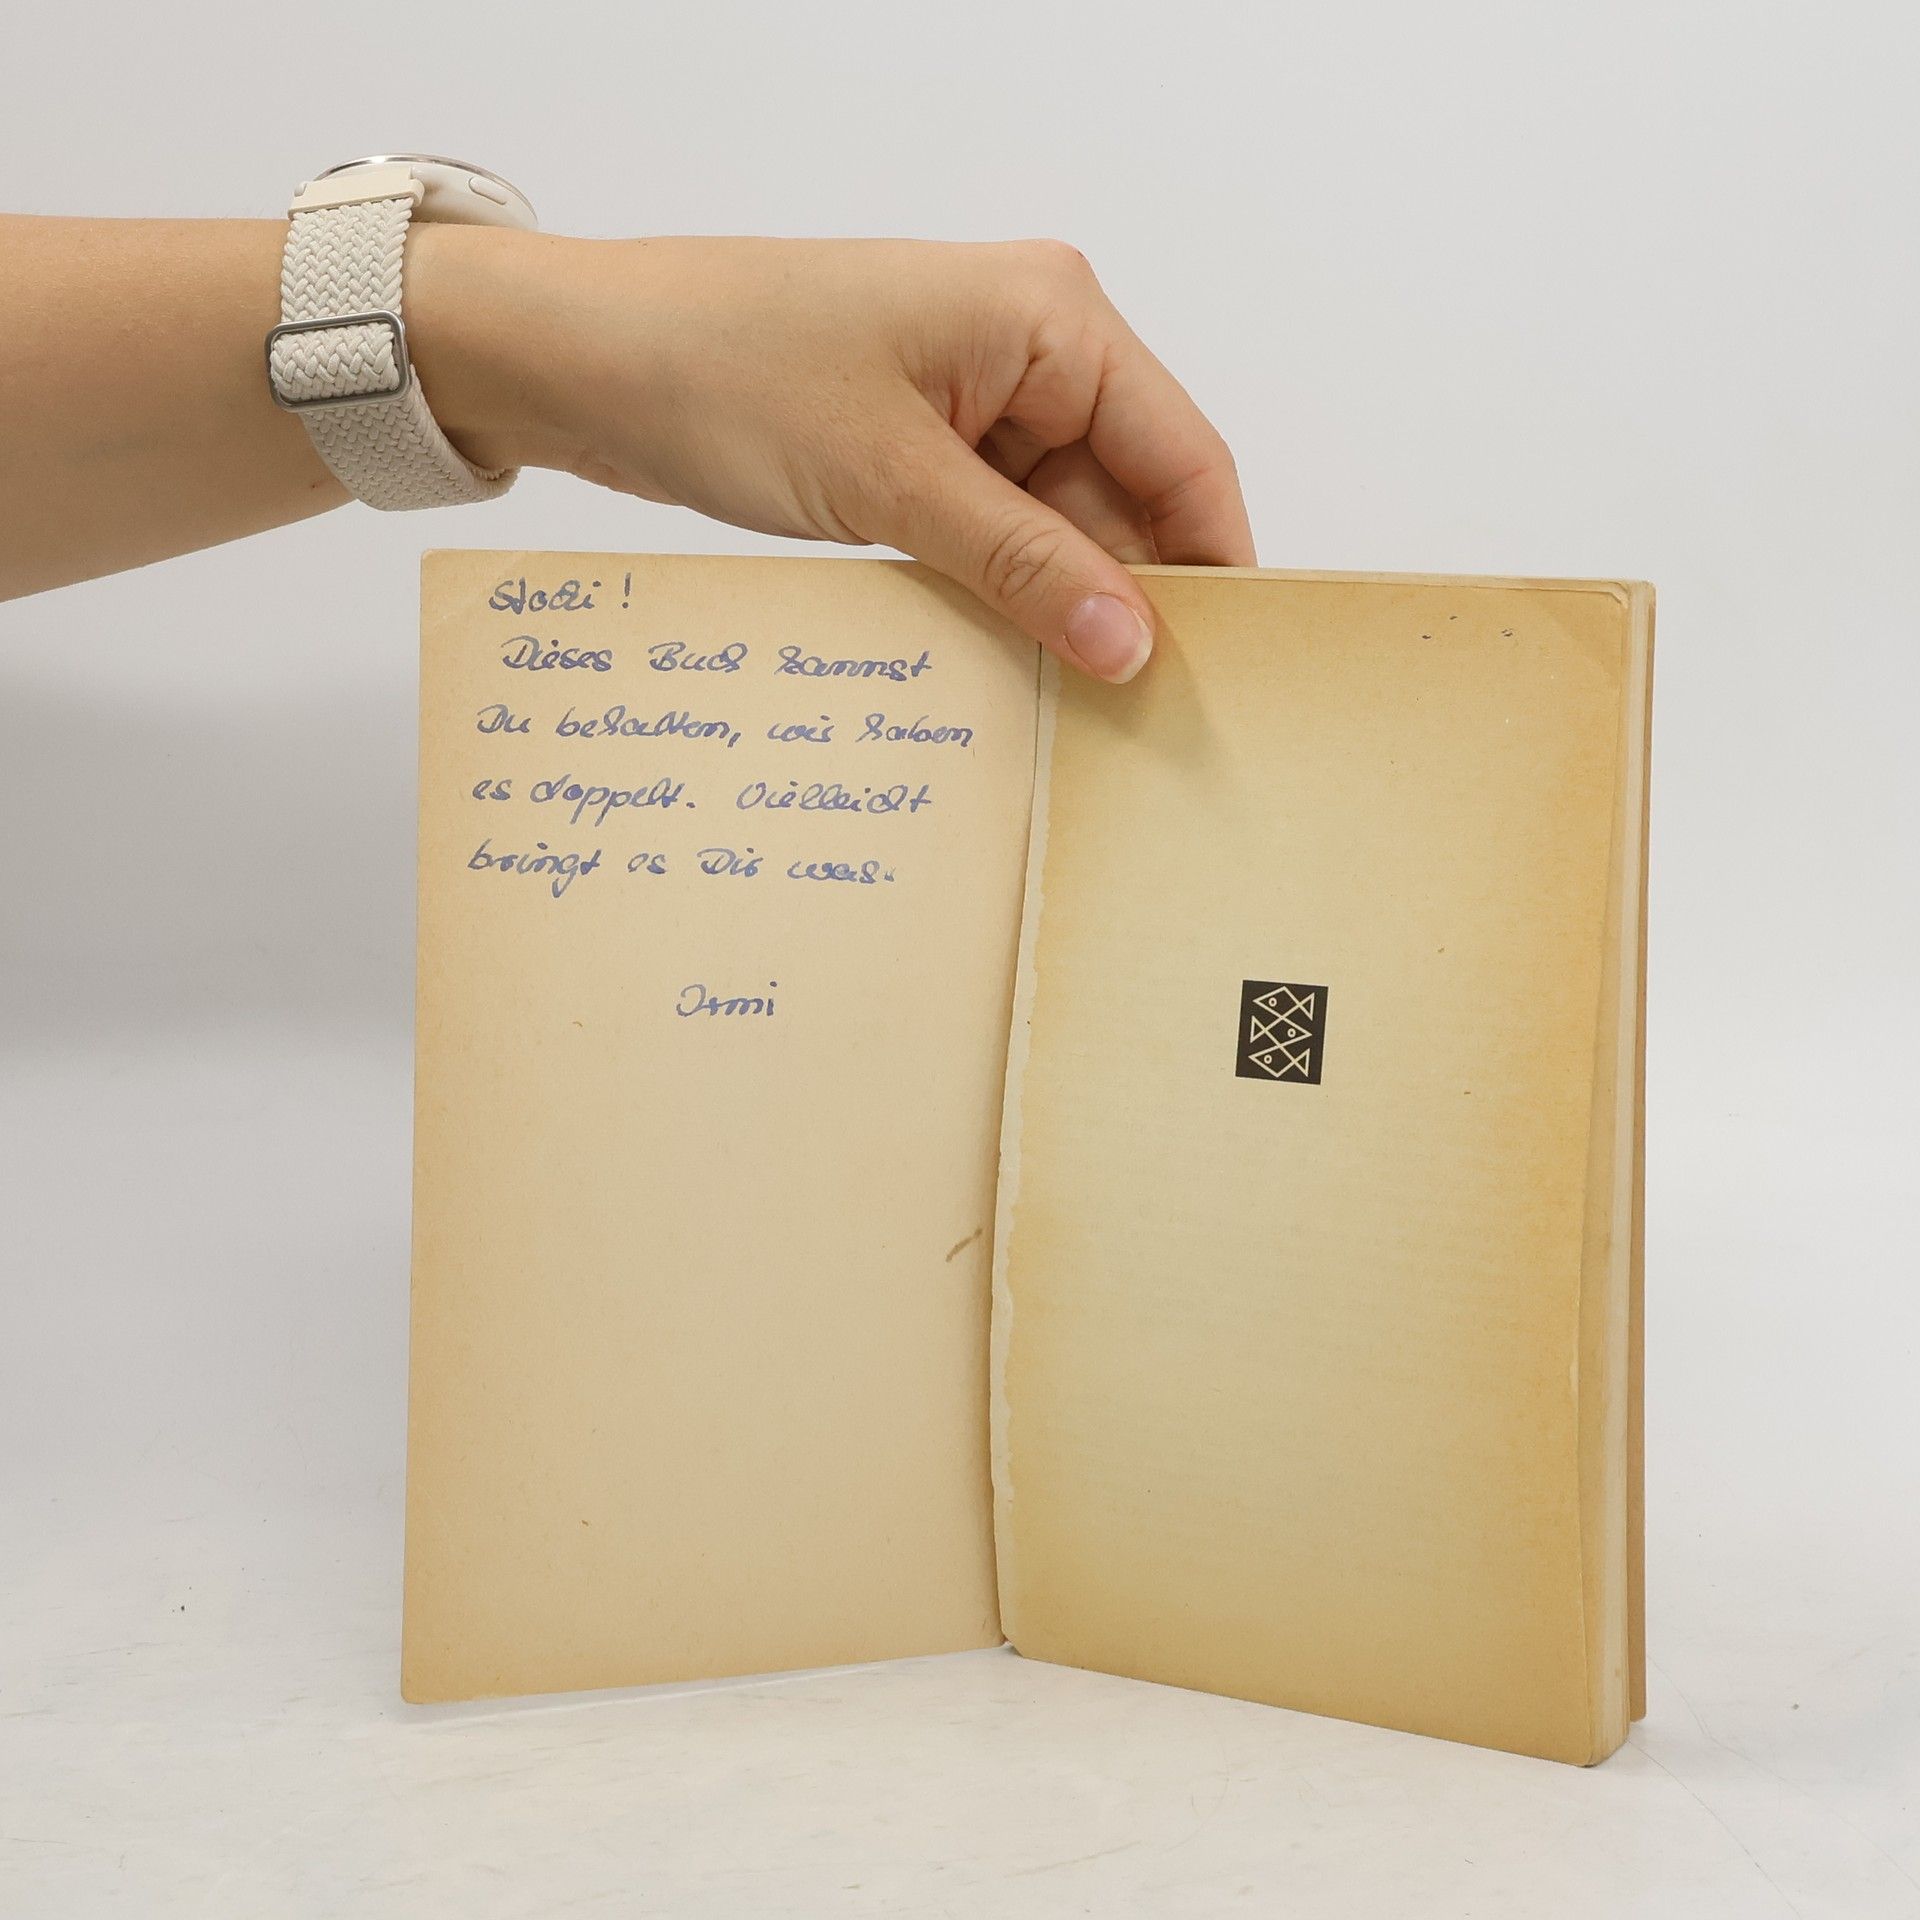 Dieses Buch kannst
Du behalten, wir haben
es doppelt. Vielleicht
bringt es Dir was.